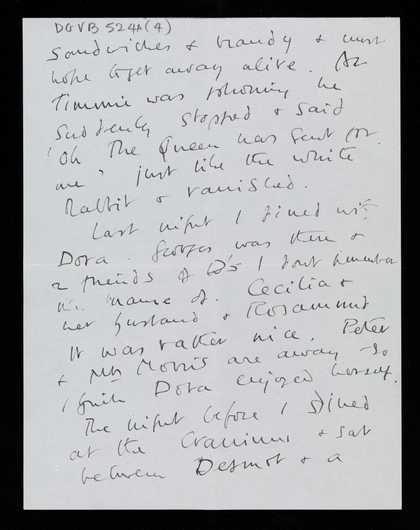 DGVB 524A (4)
Sandwiches & brandy & must
hope to get away alive. As
Timmie was phoning he
suddenly stopped & said
'Oh The Queen has sent for
me' just like the white
Rabbit & vanished.
Last night I dined with
Dora. Georges was there &
2 friends of D's I dont remember
the name of. Cecilia &
her husband & Rosamund
It was rather nice. Peter
& Mrs Morris are away so
I think Dora enjoyed herself.
The night before I dined
at the & sat
between Desmond & a